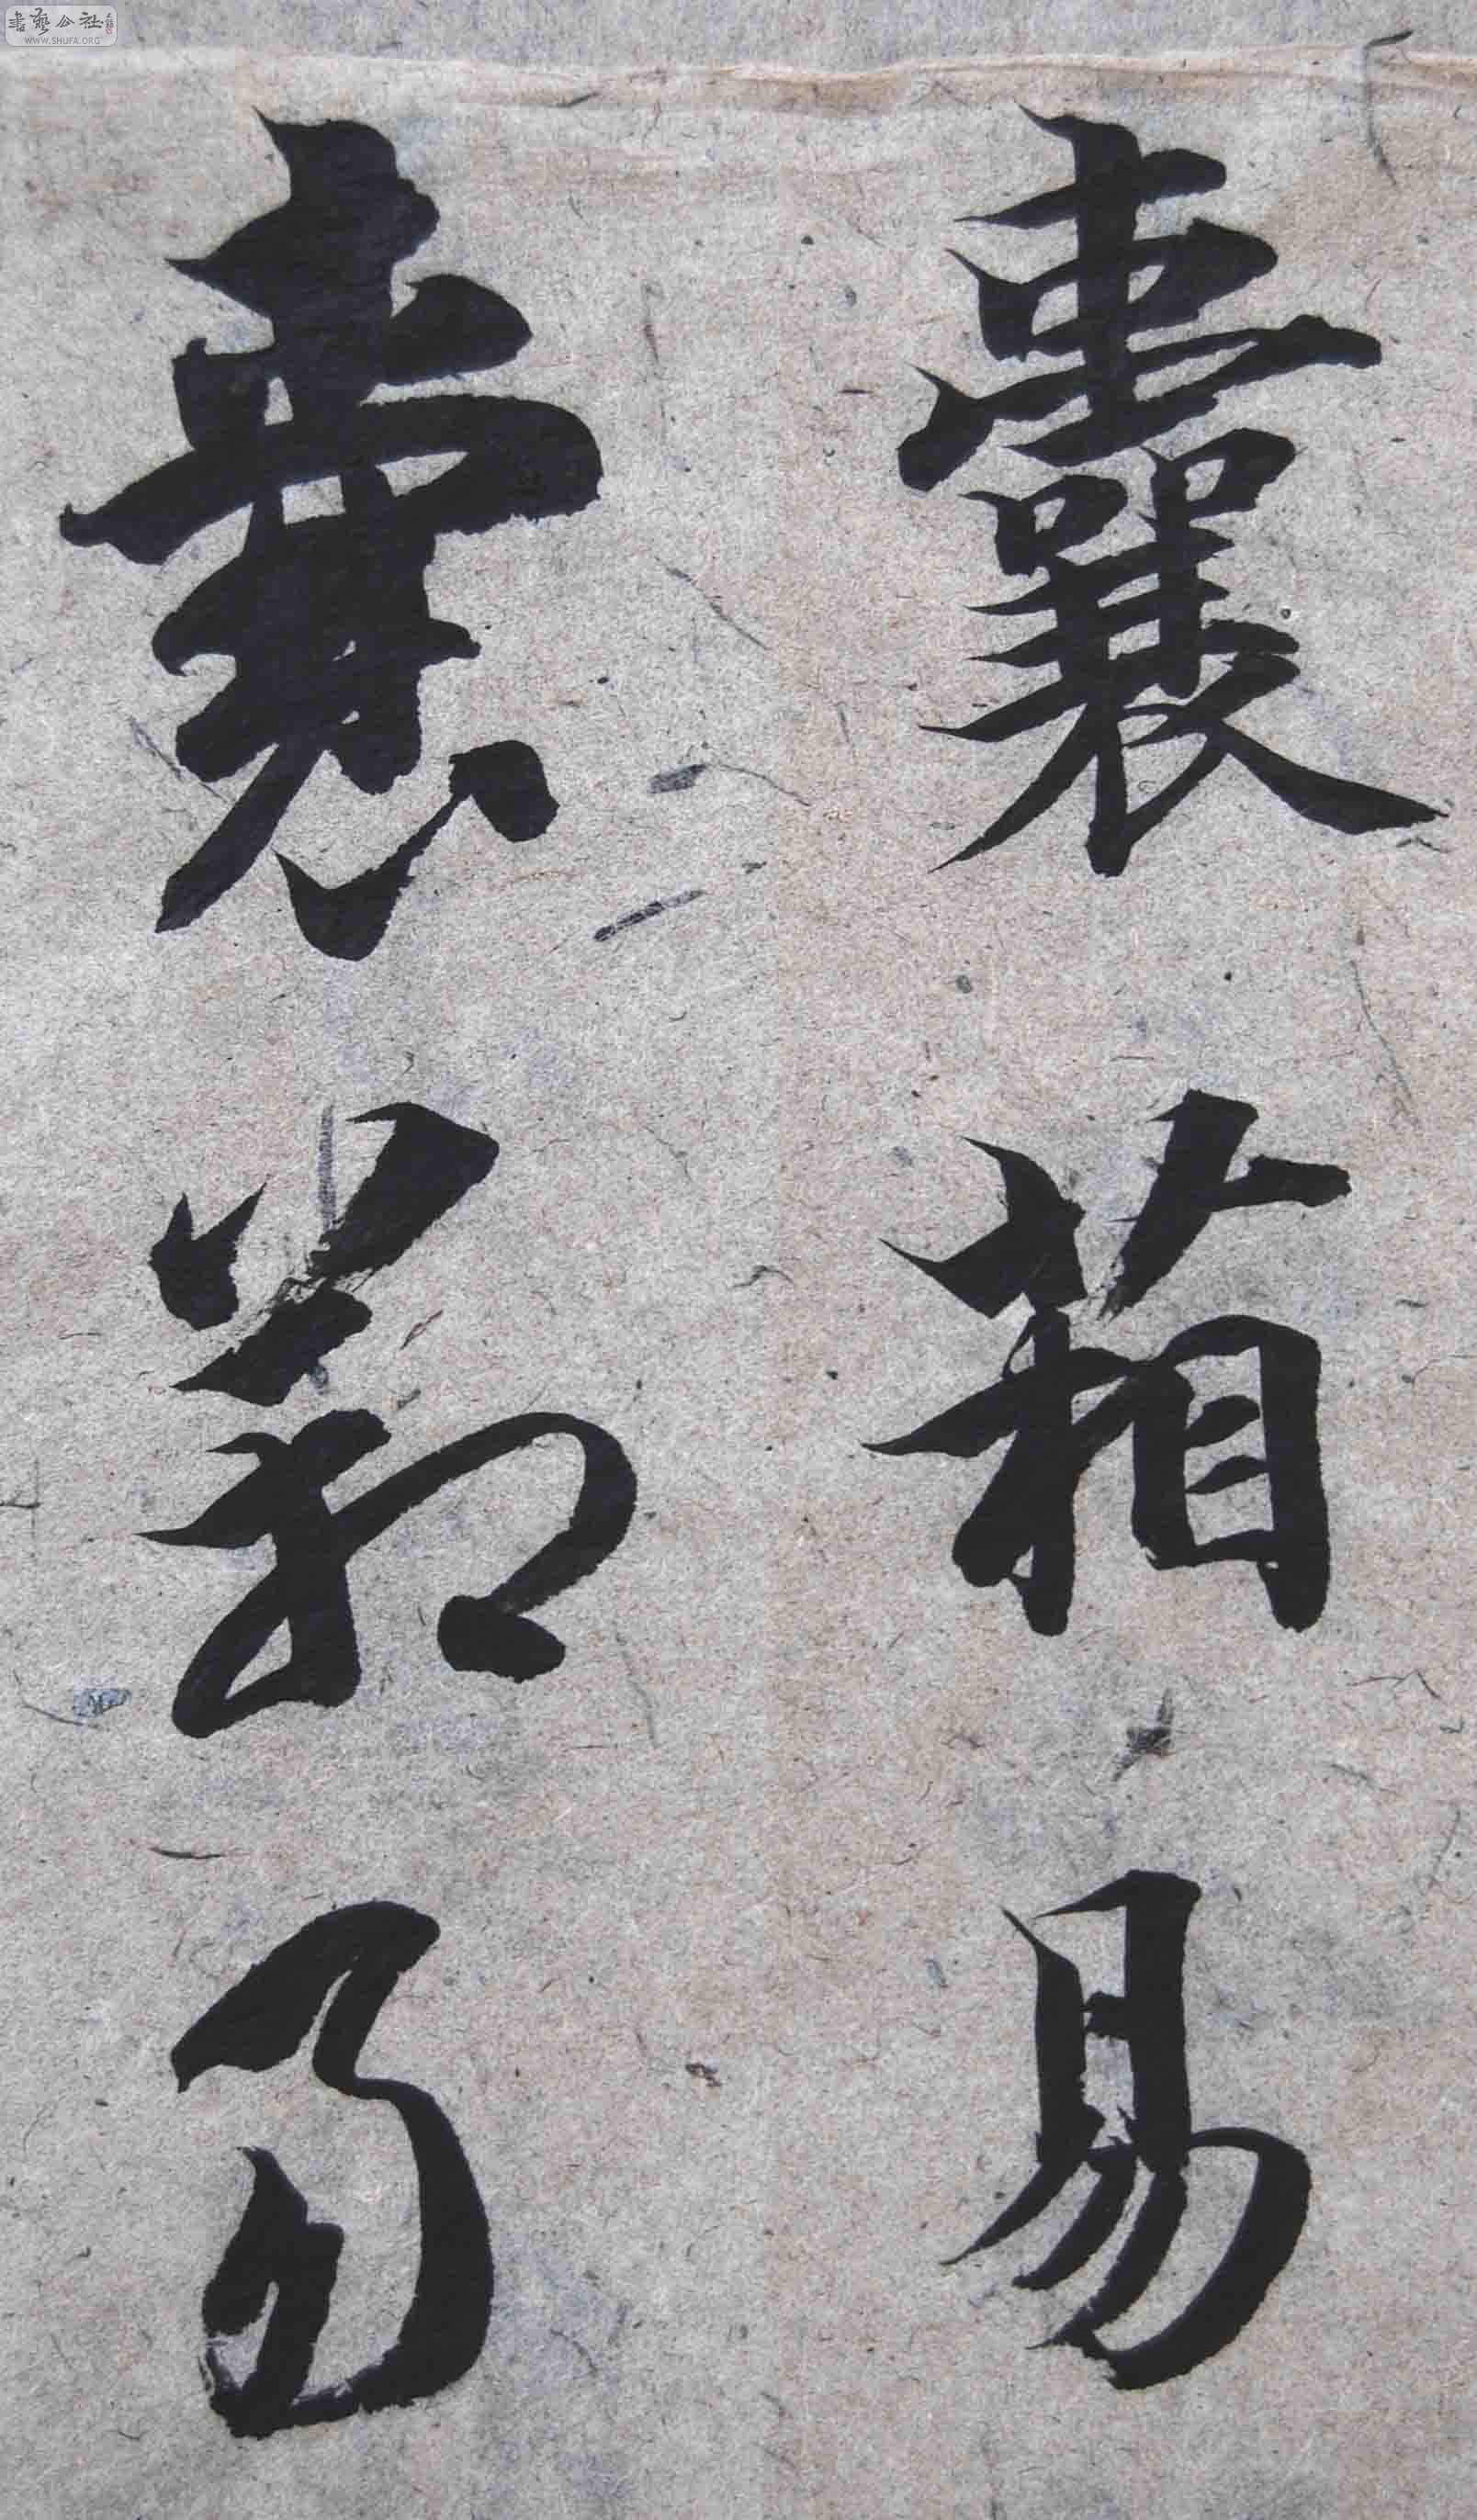 書藝公社
WWW.SHUFA.ORG
囊箱易
囊箱易